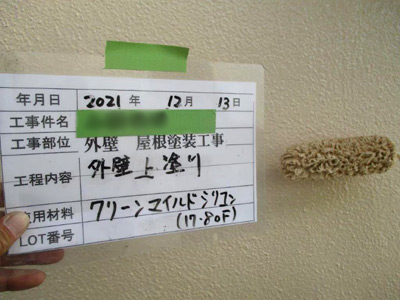 年月日 2021年 12月 13日
工事件名
工事部位 外壁 屋根塗装工事
工程内容 外壁上塗り
使用材料 クリーンマイルドシリコン
(17-80F)
LOT番号